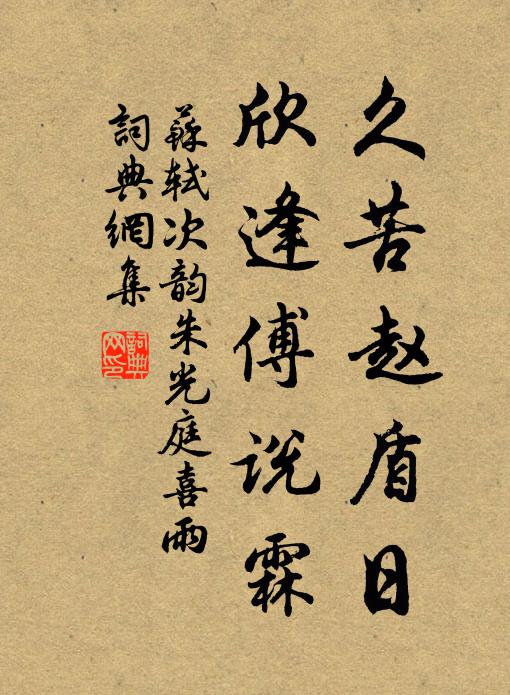 久苦赵盾日
欣逢傅说霖
蘇轼次韵朱光庭喜雨
詞典網集
詞典網印